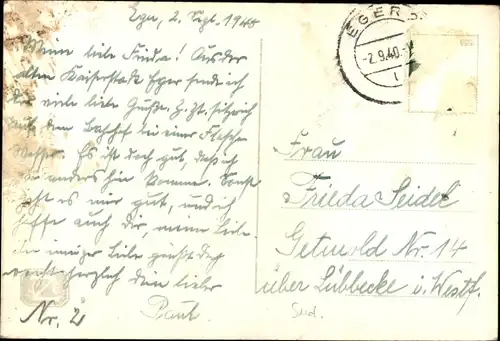 Eger, 2. Sept. 1940
Meine liebe Frieda! Aus der
alten Kaiserstadt Eger sende ich
Dir viele liebe Grüße. Z. Zt. sitze ich
auf dem Bahnhof bei einer Flasche
Wasser. Es ist doch gut, daß ich
anders hin komme. Sonst
geht es mir gut, und ich
hoffe auch Dir, meine Liebe.
In inniger Liebe grüßt Dich
recht herzlich Dein lieber
Paul
Nr. 2
EGER
-2.9.40.-
Frau
Frieda Seidel
Getmold Nr. 14
über Lübbecke i. Westf.